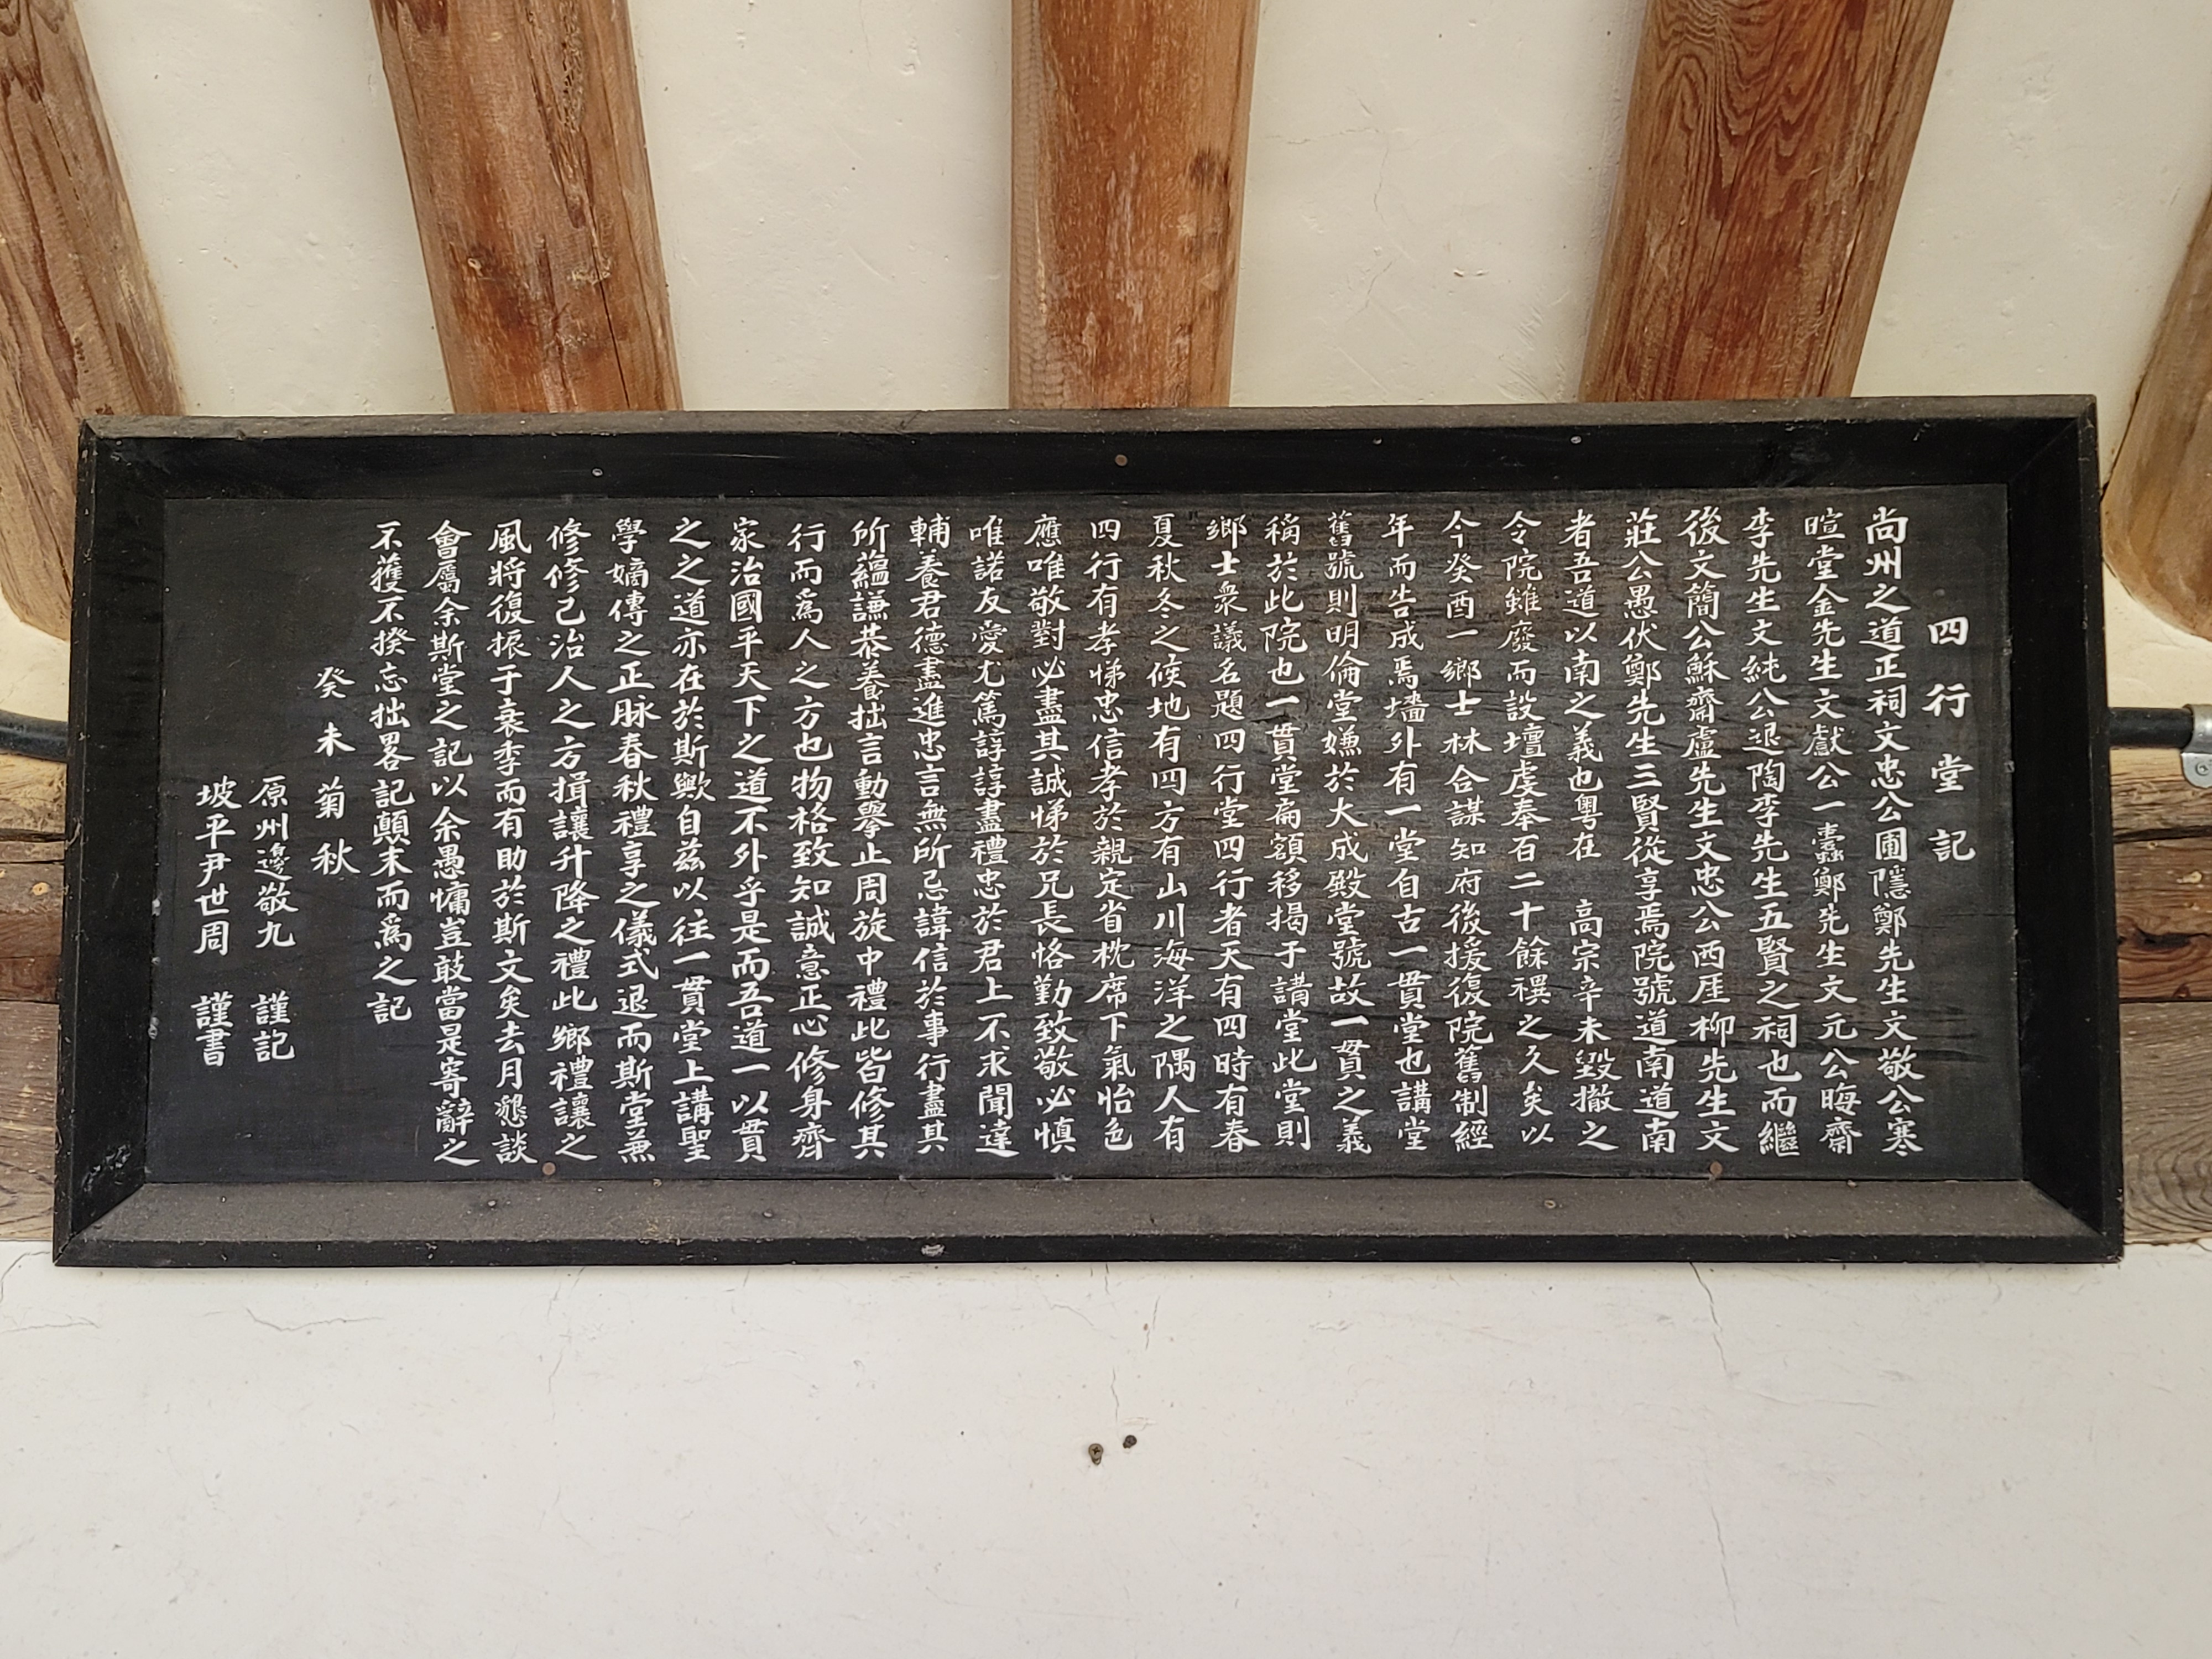 四行堂記
尚州之道正祠文忠公圃隱鄭先生文敬公寒
暄堂金先生文獻公一蠹鄭先生文元公晦齋
李先生文純公退陶李先生五賢之祠也而繼
後文簡公穌齋盧先生文忠公西厓柳先生文
莊公愚伏鄭先生三賢從享焉院號道南道南
者吾道以南之義也粤在 高宗辛未毀撤之
令院雖廢而設壇虔奉百二十餘禩之久矣以
今癸酉一鄉士林合謀知府後援復院舊制經
年而告成焉墻外有一堂自古一貫堂也講堂
舊號則明倫堂嫌於大成殿堂號故一貫之義
稱於此院也一貫堂扁額移揭于講堂此堂則
鄉士衆議名題四行堂四行者天有四時有春
夏秋冬之候地有四方有山川海洋之隅人有
四行有孝悌忠信孝於親定省枕席下氣怡色
應唯敬對必盡其誠悌於兄長恪勤致敬必慎
唯諾友愛尤篤諄諄盡禮忠於君上不求聞達
輔養君德盡進忠言無所忌諱信於事行盡其
所蘊謙恭養拙言動擧止周旋中禮此皆修其
行而爲人之方也物格致知誠意正心修身齊
家治國平天下之道不外乎是而吾道一以貫
之之道亦在於斯歟自茲以往一貫堂上講聖
學嫡傳之正脉春秋禮享之儀式退而斯堂兼
修修己治人之方揖讓升降之禮此鄉禮讓之
風將復振于衰季而有助於斯文矣去月懇談
會屬余斯堂之記以余愚慵豈敢當是寄辭之
不獲不揆忘拙畧記顛末而爲之記
癸未菊秋
原州邊敬九 謹記
坡平尹世周 謹書